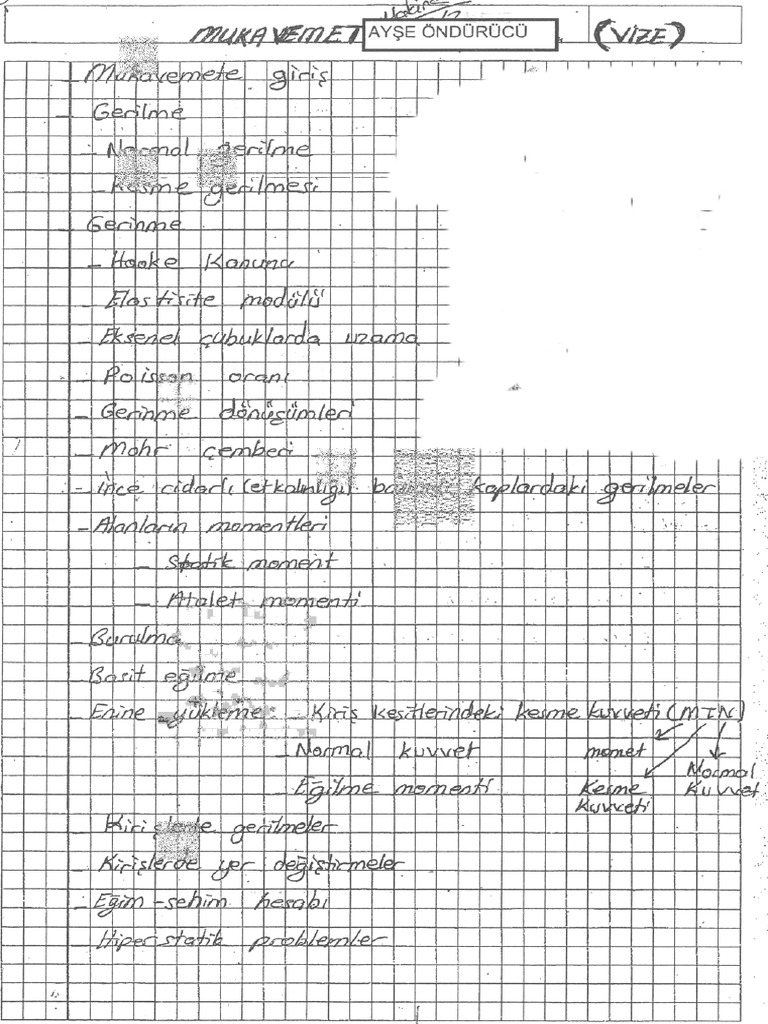 MUKAVEMET AYŞE ÖNDÜRÜCÜ (VİZE)
- Mukavemete giriş
- Gerilme
- Normal gerilme
- Kesme gerilmesi
- Gerinme
- Hooke Kanunu
- Elastisite modülü
- Eksenel çubuklarda uzama
- Poisson oranı
- Gerinme dönüşümleri
- Mohr çemberi
- İnce cidarlı (et kalınlığı) kaplardaki gerilmeler
- Alanların momentleri
- Statik moment
- Atalet momenti
- Burulma
- Basit eğilme
- Enine yükleme - Kiriş kesitlerindeki kesme kuvveti (MTN)
- Normal kuvvet momet
Normal
- Eğilme momenti Kesme Kuvvet
kuvveti
- Kirişlerde gerilmeler
- Kirişlerde yer değiştirmeler
- Eğim-sehim hesabı
- Hiperstatik problemler